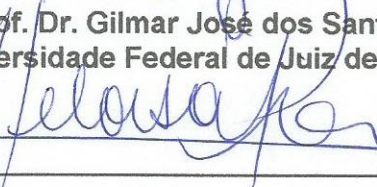 of. Dr. Gilmar José dos San
versidade Federal de Juiz de
Heloisa